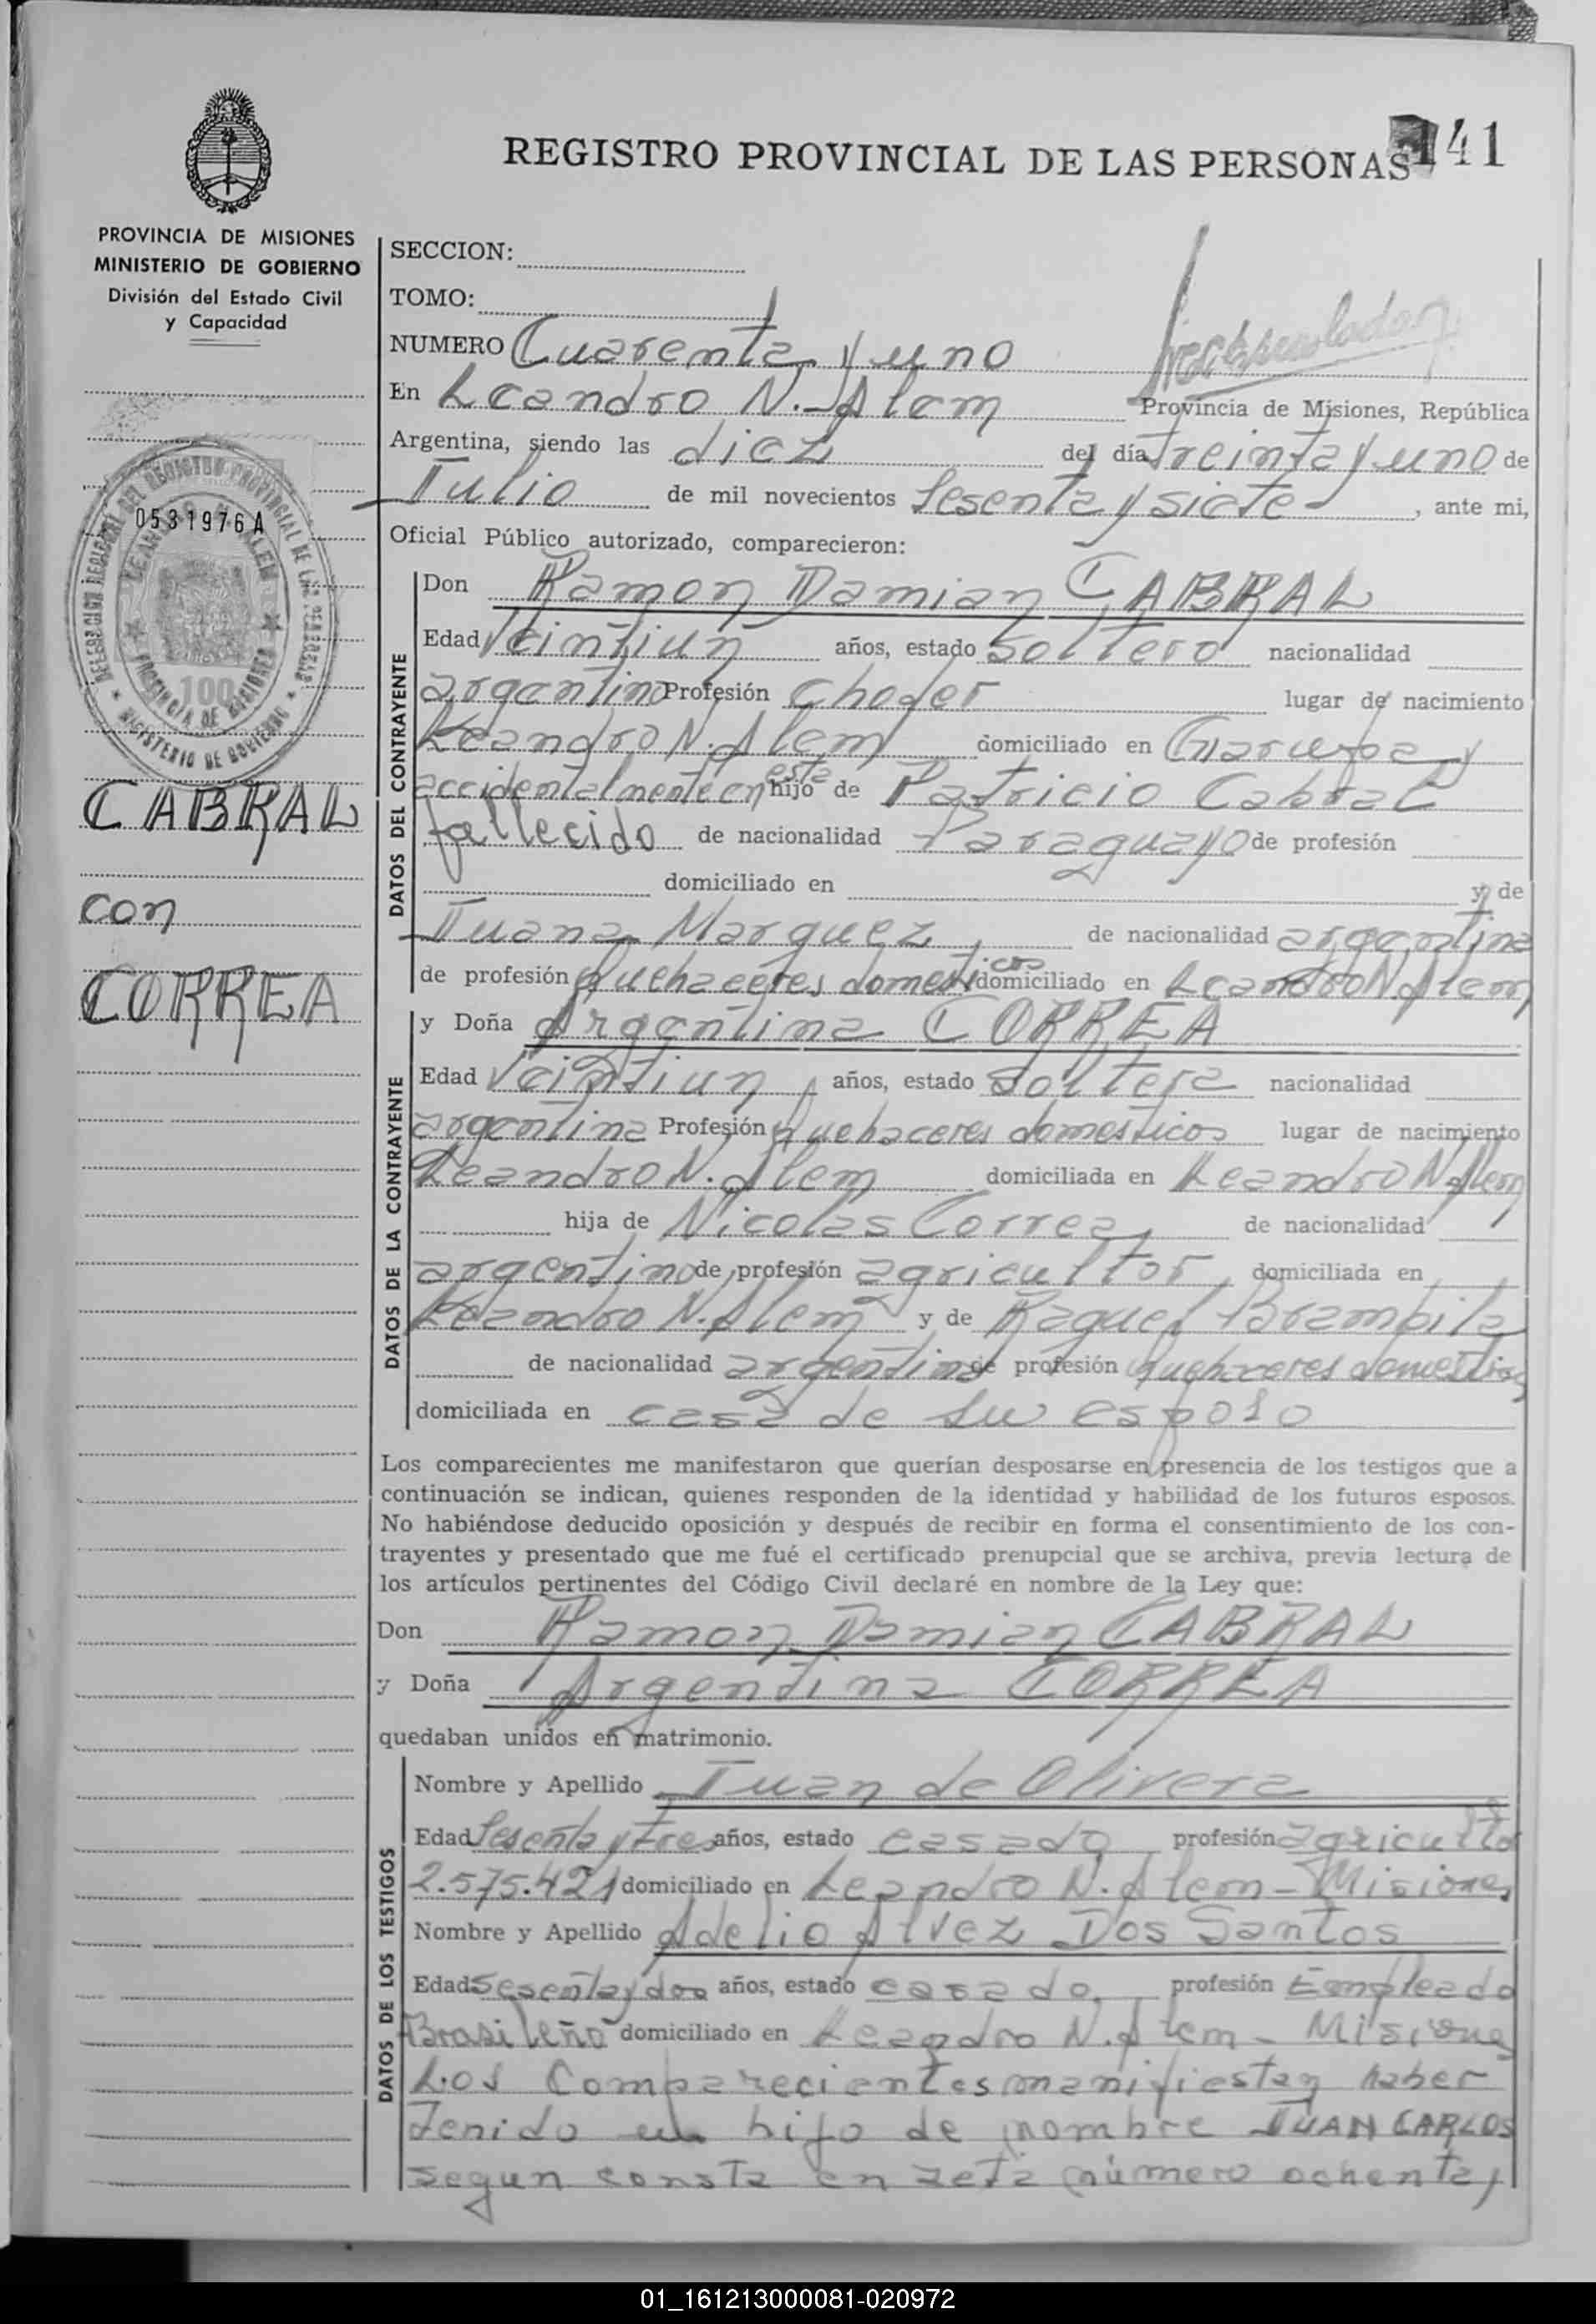 REGISTRO PROVINCIAL DE LAS PERSONAS
141
PROVINCIA DE MISIONES
MINISTERIO DE GOBIERNO
División del Estado Civil
y Capacidad
0531976A
100
CABRAL
con
CORREA
SECCION:
TOMO:
NUMERO Cuarenta y uno
En Leandro N. Alem Provincia de Misiones, República
Argentina, siendo las diez del día treinta y uno de
Julio de mil novecientos Sesenta y siete, ante mi,
Oficial Público autorizado, comparecieron:
DATOS DEL CONTRAYENTE
Don Ramon Damian CABRAL
Edad Veintiun años, estado Soltero nacionalidad
argentino Profesión Chofer lugar de nacimiento
Leandro N. Alem domiciliado en Garupa y
accidentalmente en esta hijo de Patricio Cabral
fallecido de nacionalidad Paraguayo de profesión
domiciliado en y de
Juana Marquez, de nacionalidad argentina
de profesión Quehaceres domesticos domiciliado en Leandro N. Alem
DATOS DE LA CONTRAYENTE
y Doña Argentina CORREA
Edad Veintiun años, estado Soltera nacionalidad
argentina Profesión Quehaceres domesticos lugar de nacimiento
Leandro N. Alem domiciliada en Leandro N. Alem
hija de Nicolas Correa, de nacionalidad
argentino de profesión agricultor, domiciliada en
Leandro N. Alem y de Raquel Brambila
de nacionalidad argentina de profesión Quehaceres domesticos
domiciliada en casa de su esposo
Los comparecientes me manifestaron que querían desposarse en presencia de los testigos que a
continuación se indican, quienes responden de la identidad y habilidad de los futuros esposos.
No habiéndose deducido oposición y después de recibir en forma el consentimiento de los con-
trayentes y presentado que me fué el certificado prenupcial que se archiva, previa lectura de
los artículos pertinentes del Código Civil declaré en nombre de la Ley que:
Don Ramon Damian CABRAL
y Doña Argentina CORREA
quedaban unidos en matrimonio.
DATOS DE LOS TESTIGOS
Nombre y Apellido Juan de Olivera
Edad Sesenta y tres años, estado casado profesión agricultor
2.575.421 domiciliado en Leandro N. Alem - Misiones
Nombre y Apellido Adelio Alvez Dos Santos
Edad Sesenta y dos años, estado casado, profesión Empleado
Brasileño domiciliado en Leandro N. Alem - Misiones
Los Comparecientes manifiestan haber
tenido un hijo de nombre JUAN CARLOS
segun consta en acta número ochenta y
01_161213000081-020972